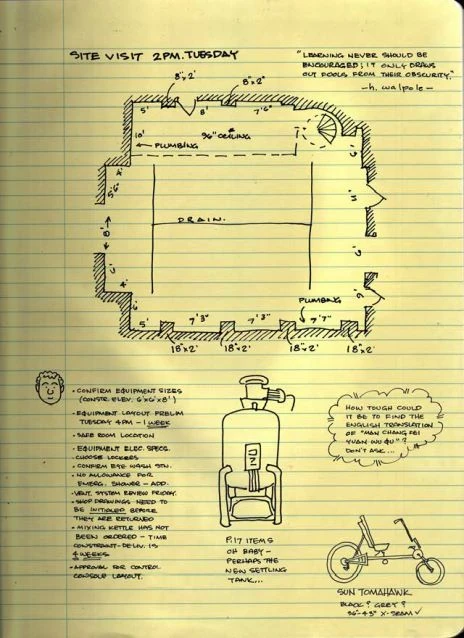 SITE VISIT 2PM. TUESDAY
"LEARNING NEVER SHOULD BE
ENCOURAGED; IT ONLY DRAWS
OUT FOOLS FROM THEIR OBSCURITY."
-h. walpole-
8"x2'
8"x2"
5'
8'
7'6"
10'
96" CEILING
PLUMBING
4'
5'6"
DRAIN.
8'
11'
4'
PLUMBING
5'
7'3"
7'3"
7'7"
18"x2'
18"x2'
18"x2'
18"x2'
• CONFIRM EQUIPMENT SIZES
(CONSTR. ELEV. 6'x6'x8')
• EQUIPMENT LAYOUT PRELIM
TUESDAY 4PM - 1 WEEK
• SAFE ROOM LOCATION
• EQUIPMENT ELEC. SPECS.
• CHOOSE LOCKERS
• CONFIRM EYE WASH STN.
• NO ALLOWANCE FOR
EMERG. SHOWER - ADD.
• VENT. SYSTEM REVIEW FRIDAY.
• SHOP DRAWINGS NEED TO
BE INITIALED BEFORE
THEY ARE RETURNED
• MIXING KETTLE HAS NOT
BEEN ORDERED - TIME
CONSTRAINT - DELIV. IS
4 WEEKS
• APPROVAL FOR CONTROL
CONSOLE LAYOUT.
P.17 ITEMS
OH BABY -
PERHAPS THE
NEW SETTLING
TANK...
HOW TOUGH COULD
IT BE TO FIND THE
ENGLISH TRANSLATION
OF "MAN CHANG FEI
YUAN WU QU"?
DON'T ASK...
SUN TOMAHAWK
BLACK? GREY?
36"-43" X-SEAM ✓